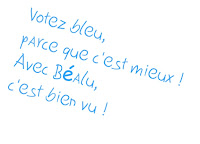 Votez bleu,
parce que c'est mieux !
Avec Béalu,
c'est bien vu !